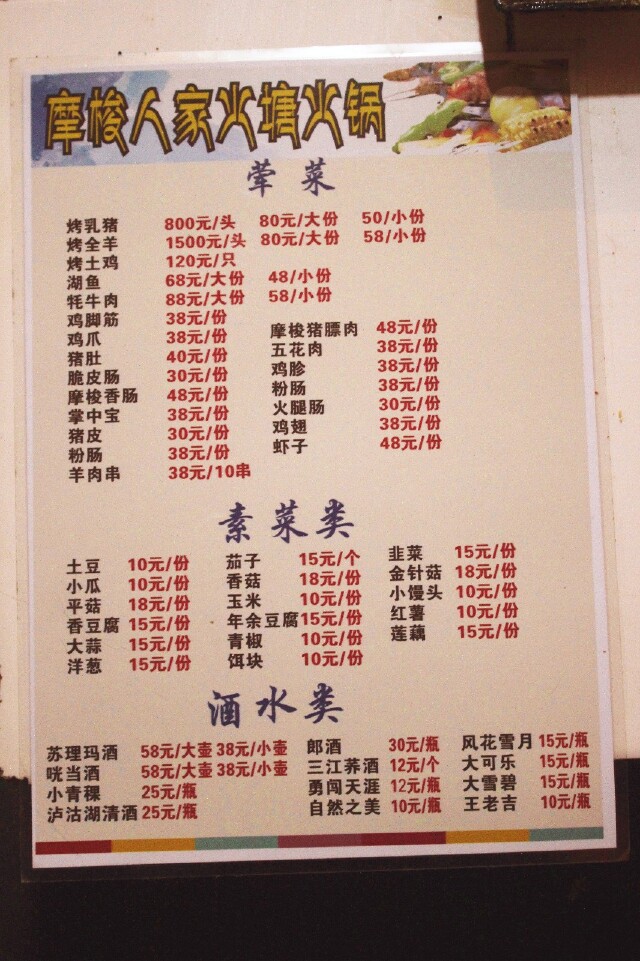 摩梭人家火塘火锅
荤菜
烤乳猪 800元/头 80元/大份 50/小份
烤全羊 1500元/头 80元/大份 58/小份
烤土鸡 120元/只
湖鱼 68元/大份 48/小份
牦牛肉 88元/大份 58/小份
鸡脚筋 38元/份
鸡爪 38元/份
猪肚 40元/份
脆皮肠 30元/份
摩梭香肠 48元/份
掌中宝 38元/份
猪皮 30元/份
粉肠 38元/份
羊肉串 38元/10串
摩梭猪膘肉 48元/份
五花肉 38元/份
鸡胗 38元/份
粉肠 38元/份
火腿肠 30元/份
鸡翅 38元/份
虾子 48元/份
素菜类
土豆 10元/份
小瓜 10元/份
平菇 18元/份
香豆腐 15元/份
大蒜 15元/份
洋葱 15元/份
茄子 15元/个
香菇 18元/份
玉米 10元/份
年余豆腐 15元/份
青椒 10元/份
饵块 10元/份
韭菜 15元/份
金针菇 18元/份
小馒头 10元/份
红薯 10元/份
莲藕 15元/份
酒水类
苏理玛酒 58元/大壶 38元/小壶
咣当酒 58元/大壶 38元/小壶
小青稞 25元/瓶
泸沽湖清酒 25元/瓶
郎酒 30元/瓶
三江荞酒 12元/个
勇闯天涯 12元/瓶
自然之美 10元/瓶
风花雪月 15元/瓶
大可乐 15元/瓶
大雪碧 15元/瓶
王老吉 10元/瓶